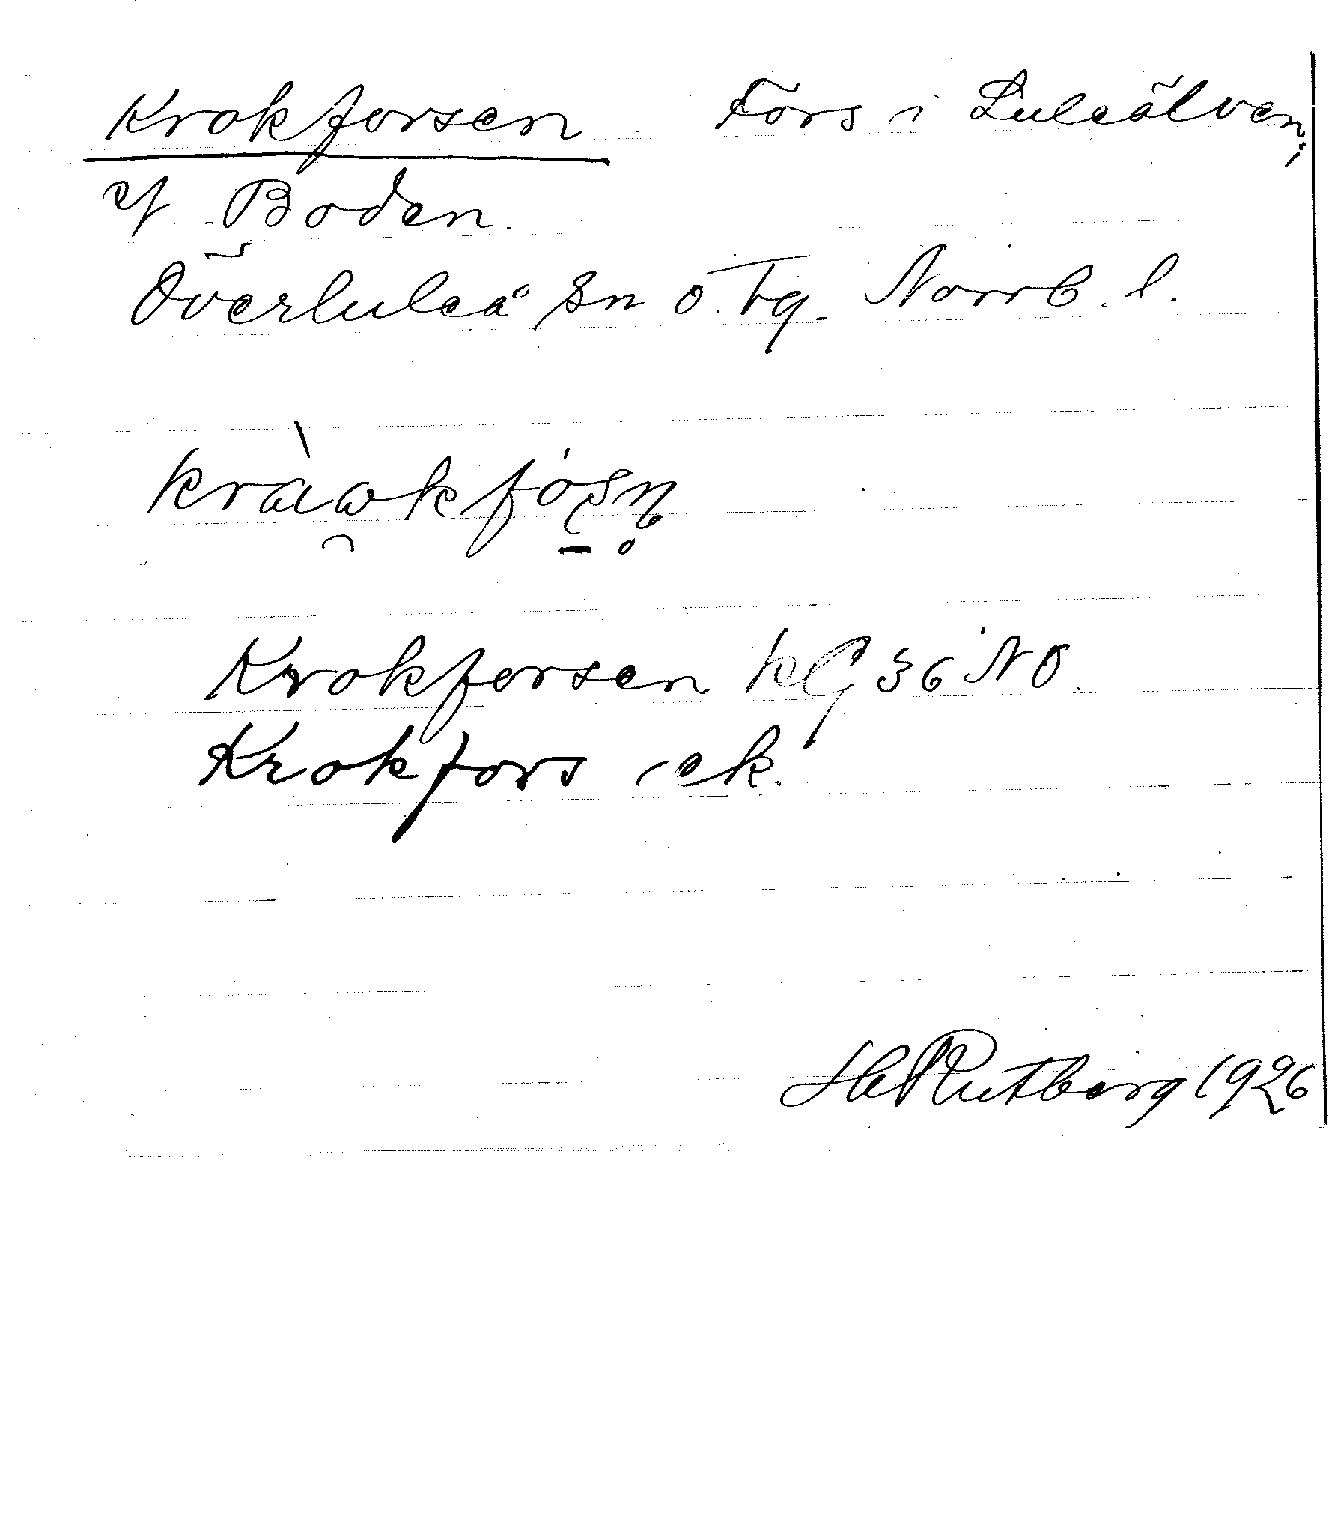 Krokforsen Fors i Luleälven;
vf Boden.
Överluleå sn ö. Tg. Norrb. l.
kràωkfós̠n̥
Krokforsen kG 36 NO
Krokfors ek.
H Rutberg 1926